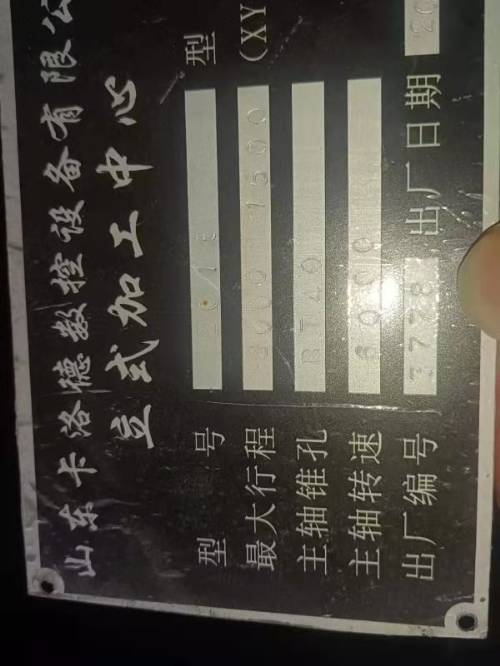 山东卡洛德数控设备有限公
立式加工中心
型号 型
最大行程 1500 (XY
主轴锥孔 BT40
主轴转速 6000
出厂编号 3728 出厂日期 20